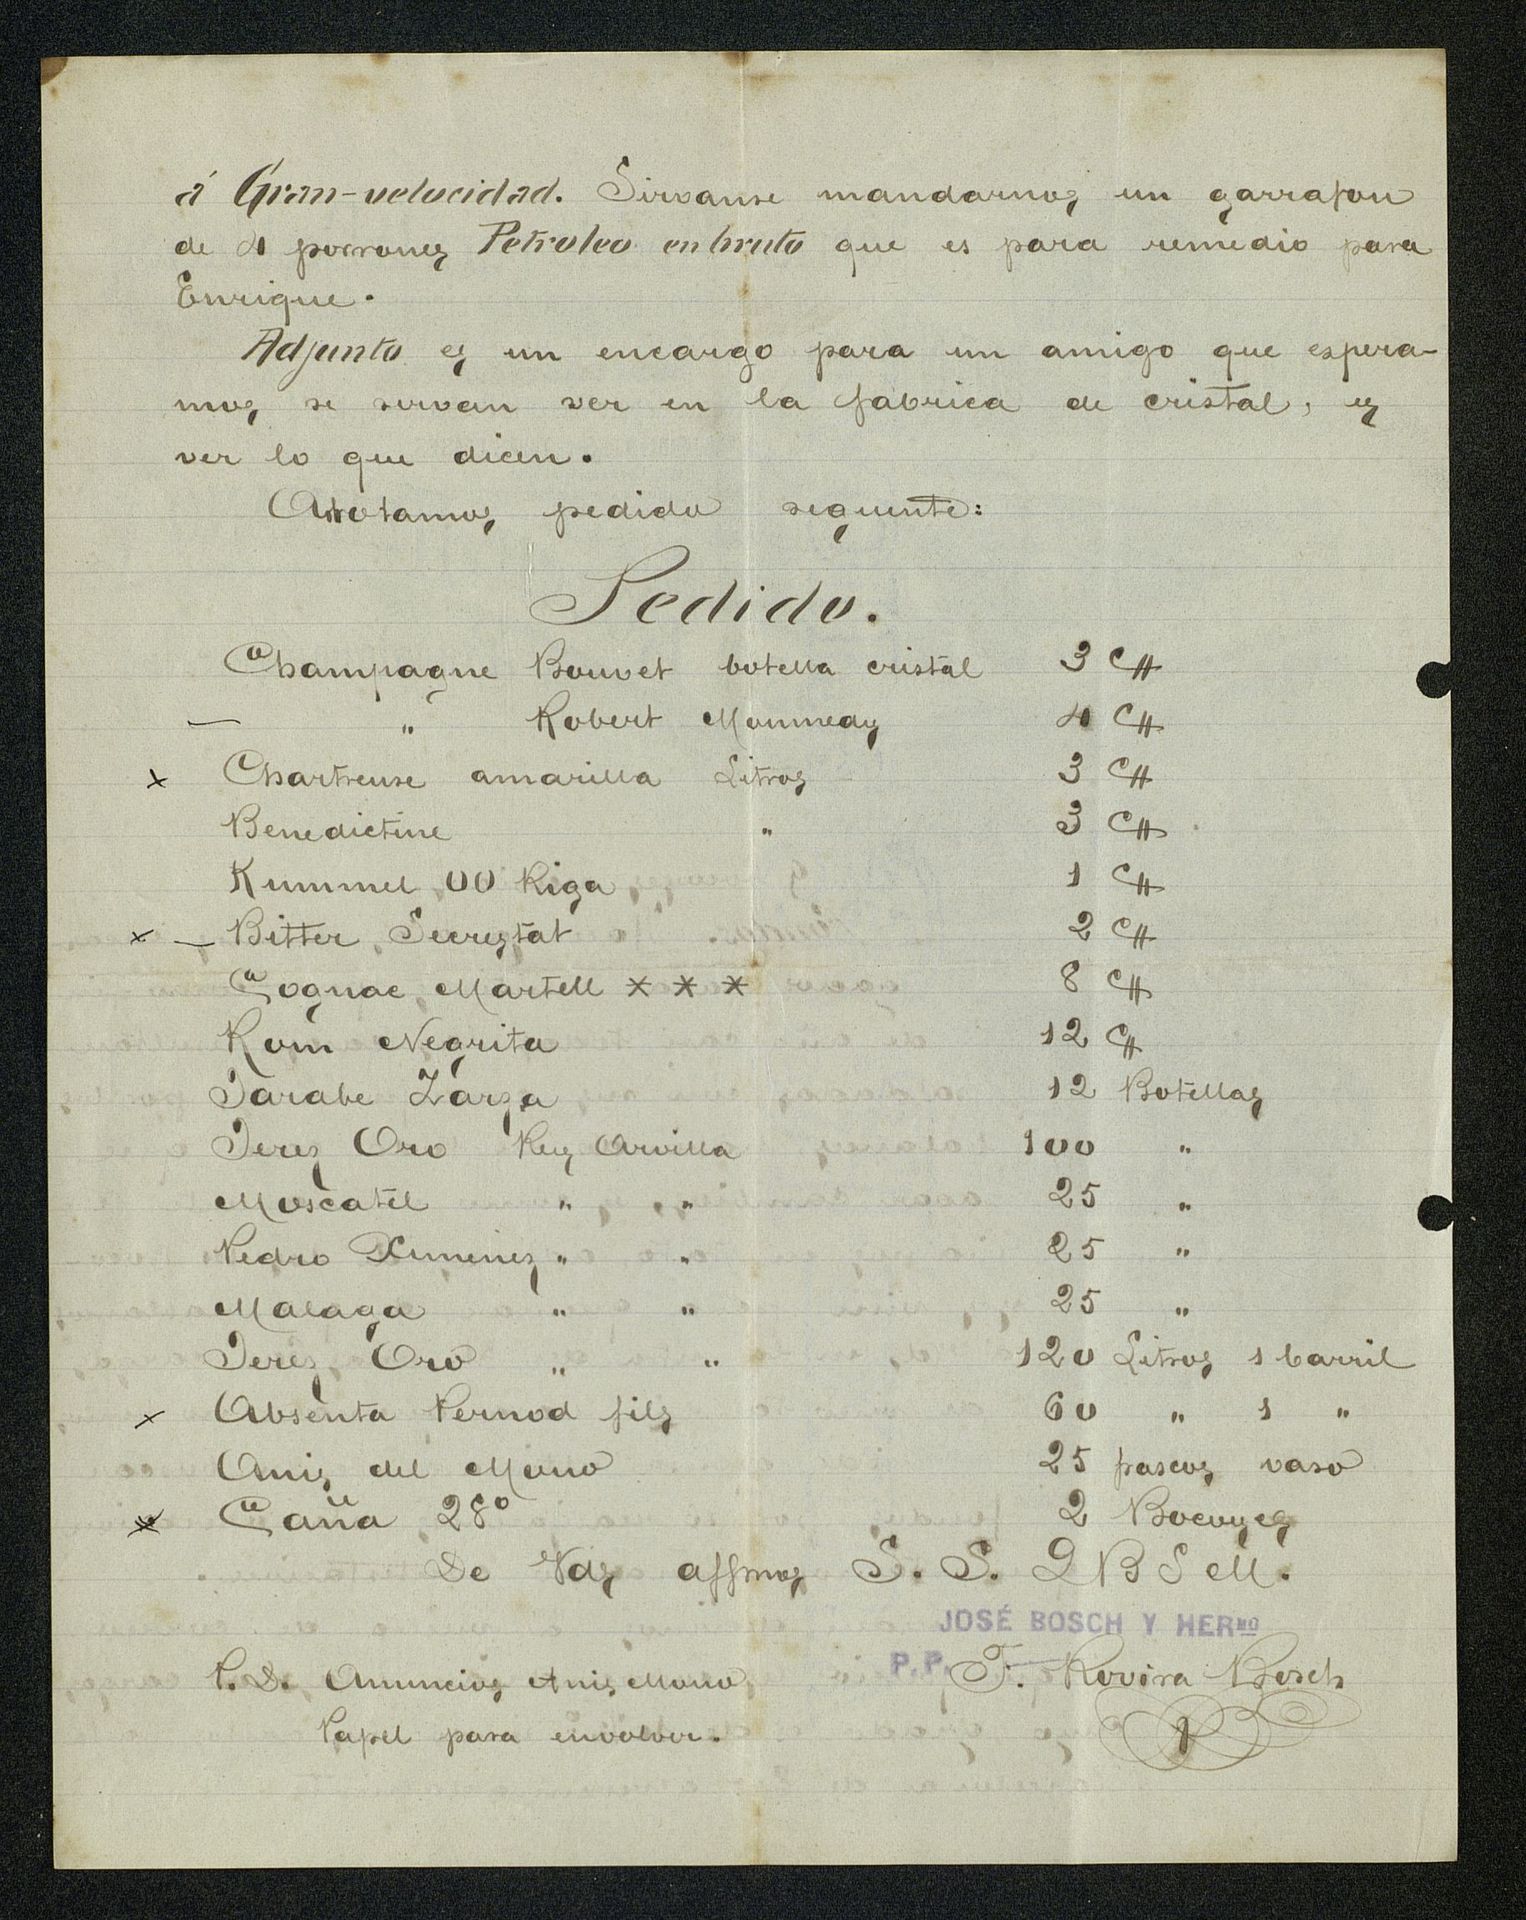 á Gran-velocidad. Sirvanse mandarnos un garrafon
de 4 porrones Petroleo en bruto que es para remedio para
Enrique.
Adjunto es un encargo para un amigo que espera-
mos se servan ver en la fabrica de cristal, es
ver lo que dicen.
Anotamos pedido seguente:
Pedido.
Champagne Bouvet botella cristal 3 C//
— " Robert Moumedy 4 C//
x Chartreuse amarilla Litros 3 C//
Benedictine " 3 C//
Kummel 00 Riga 1 C//
x — Bitter Secrestat 2 C//
Cognac Martell * * * 8 C//
Rom Negrita 12 C//
Jarabe Zarza 12 Botellas
Jerez Oro Rey Arvilla 100 "
Moscatel " " 25 "
Pedro Ximenez " " 25 "
Malaga " " 25 "
Jerez Oro " " 120 Litros 1 barril
x Absenta Pernod fils 60 " 1 "
Anis del Mono 25 vaso
x Caña 28º 2 Bocoyes
De Vds affmos S. S. Q B S M.
JOSÉ BOSCH Y HERNO
P.P. F. Rovira Bosch
P. D. Anuncios Anis Mono
Papel para envolver.